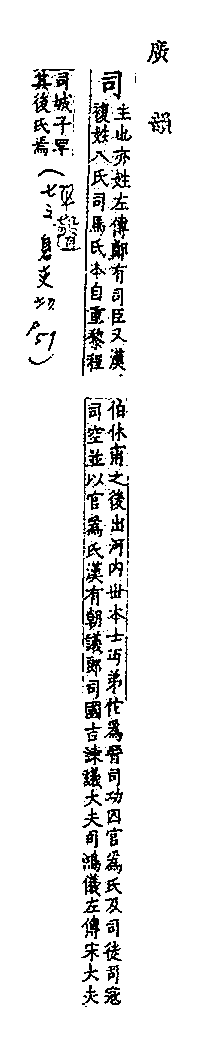 廣韻
司
主也亦姓左傳鄭有司臣又漢
複姓八氏司馬氏本自重黎程
伯休甫之後出河內世本士丐弟佗為晉司功因官為氏及司徒司寇
司空並以官爲氏漢有朝議郎司國吉諫議大夫司鴻儀左傳宋大夫
司城子罕
其後氏焉
(七之 息支切 P51)